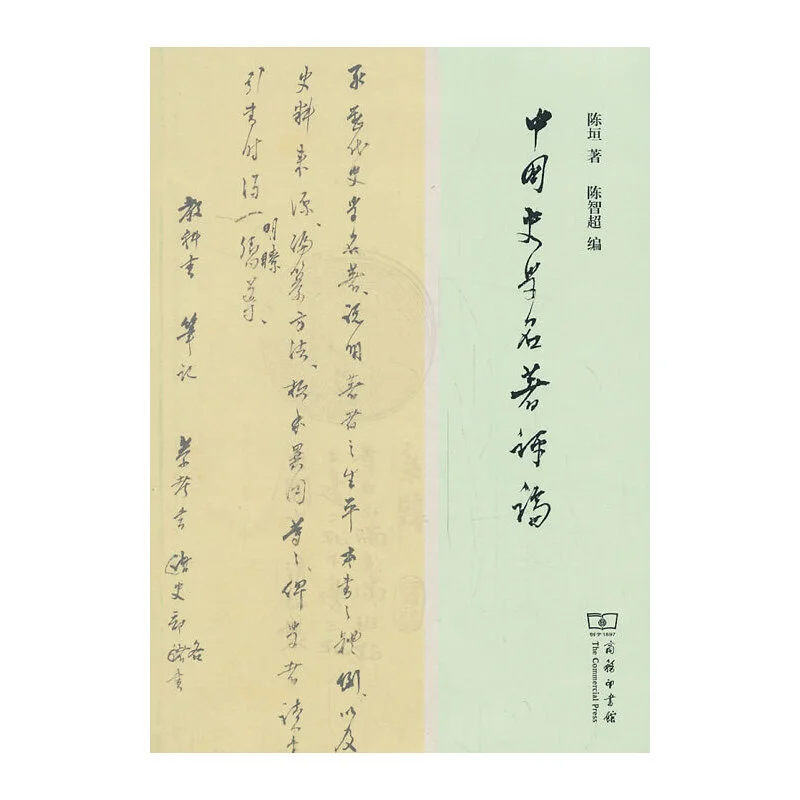 陈垣 著 陈智超 编
中国史学名著评论
取歷代史学名著、说明著者之生平、本书之體例、以及
史料来源、编纂方法、板本異同等等、俾学者读书
引书时得一
明瞭
教科书 筆记 参考书
创于1897
商務印書館
The Commercial Press